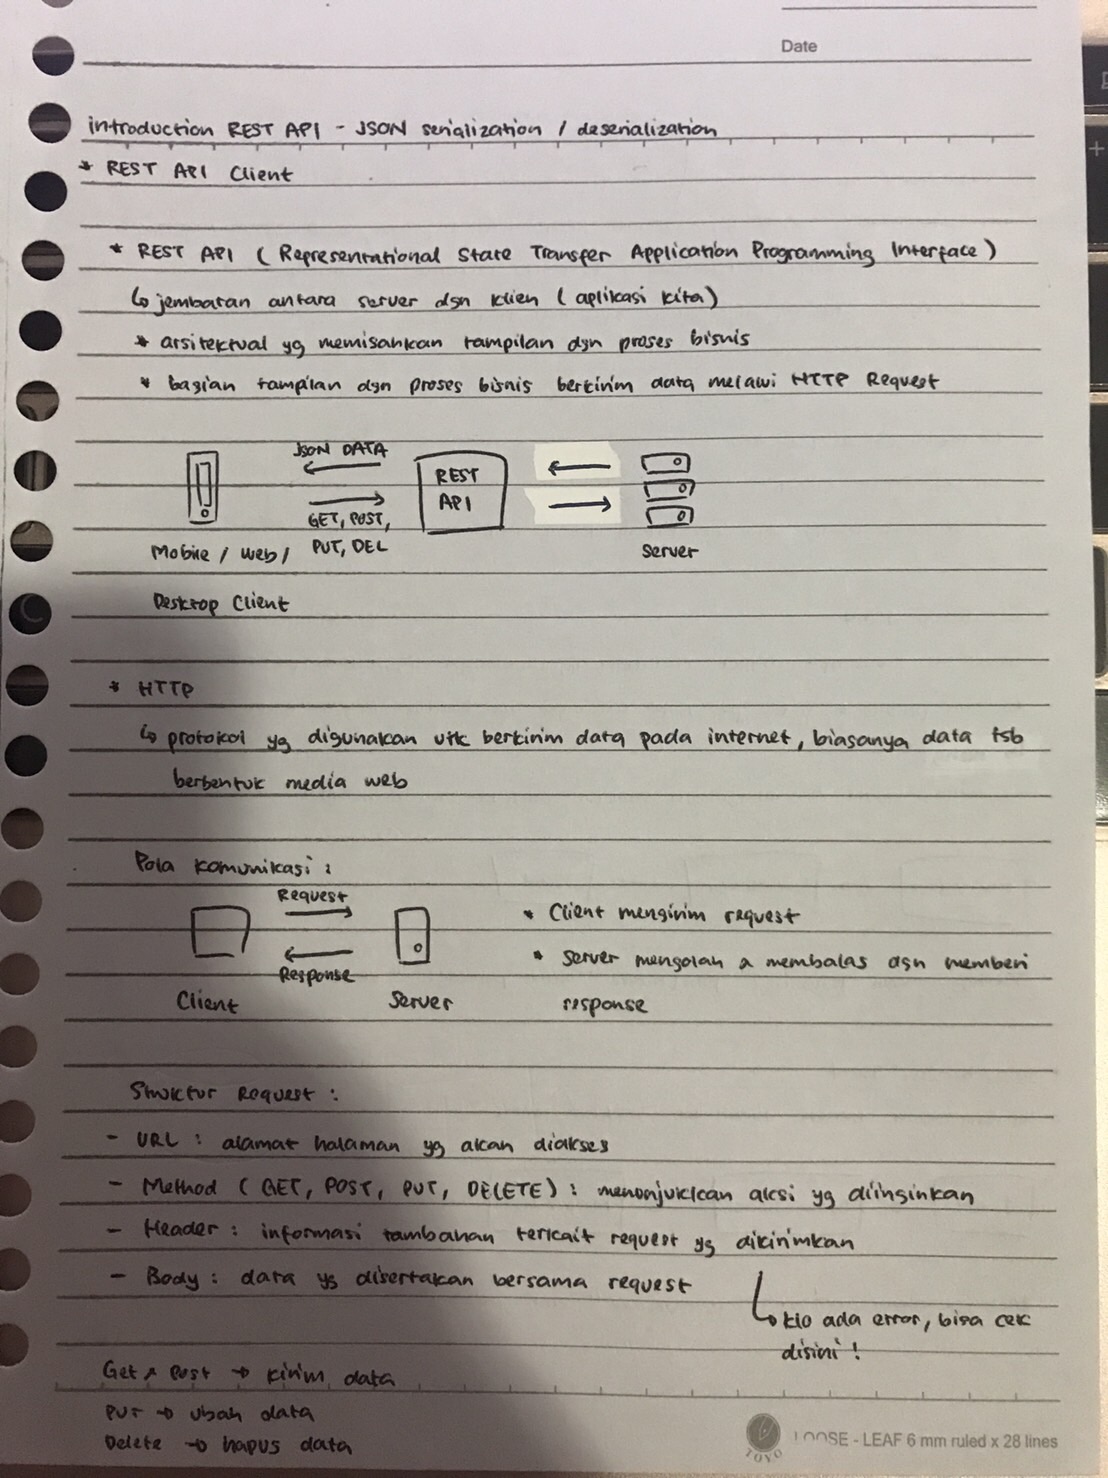 Date
introduction REST API - JSON serialization / deserialization
* REST API Client
* REST API ( Representational State Transfer Application Programming Interface )
↳ jembatan antara server dgn klien ( aplikasi kita )
* arsitektual yg memisahkan tampilan dgn proses bisnis
* bagian tampilan dgn proses bisnis berkirim data melalui HTTP Request
JSON DATA
REST
API
GET, POST,
PUT, DEL
Mobile / Web /
Desktop Client
Server
* HTTP
↳ protokol yg digunakan utk berkirim data pada internet, biasanya data tsb
berbentuk media web
Pola komunikasi :
Request
Response
Client
Server
* Client mengirim request
* Server mengolah & membalas dgn memberi
response
Struktur Request :
- URL : alamat halaman yg akan diakses
- Method ( GET, POST, PUT, DELETE ) : menonjukkan aksi yg diinginkan
- Header : informasi tambahan terkait request yg dikirimkan
- Body : data yg disertakan bersama request
↳ klo ada error, bisa cek
disini !
Get & Post → kirim data
PUT → ubah data
Delete → hapus data
TOYO
LOOSE - LEAF 6 mm ruled x 28 lines